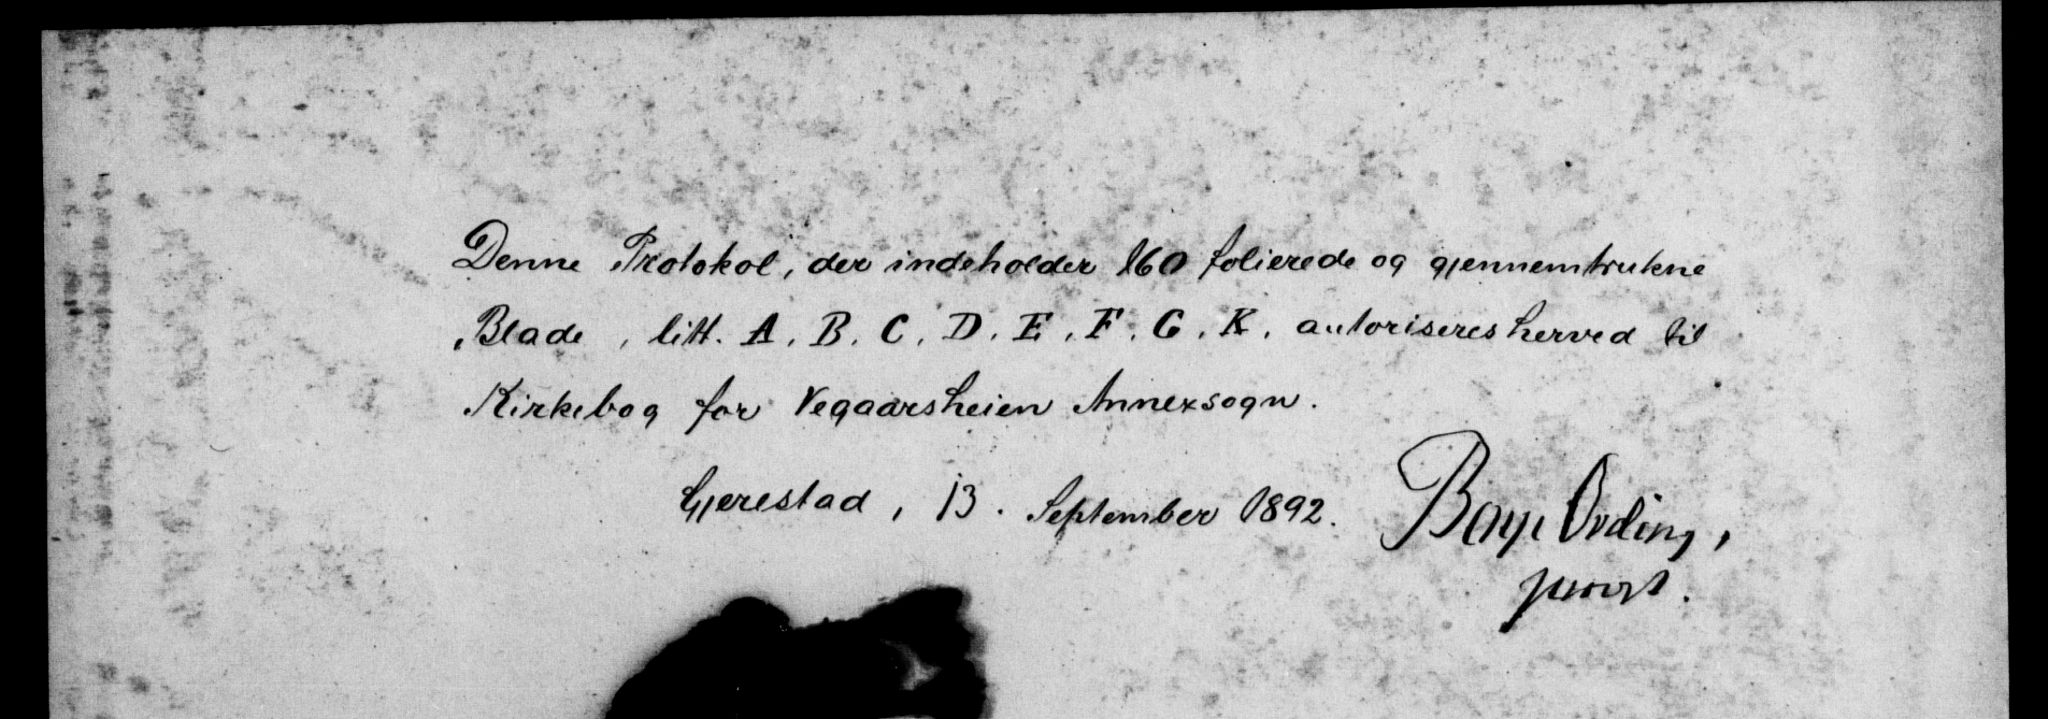 Denne Protokol, der indeholder 160 folierede og gjennemtrukne
Blade, litt. A. B. C. D. E. F. G. K. autoriseres herved til
Kirkebog for Vegaarsheien Annexsogn.
Gjerestad, 13. September 1892. Boye Ording,
provst.